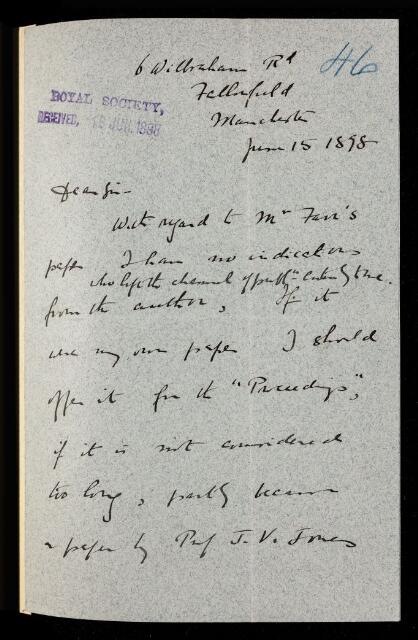 46
6 Wilbraham Rd
Fallowfield
Manchester
June 15 1898
ROYAL SOCIETY,
RECEIVED, 16 JUN. 1898
Dear Sir -
With regard to Mr
paper I have no indications
who left the channel of publn. entirely to me.
from the author, If it
were my own paper I should
offer it for the "Proceedings",
if it is not considered
too long, partly because
a paper by Prof J. V. Jones